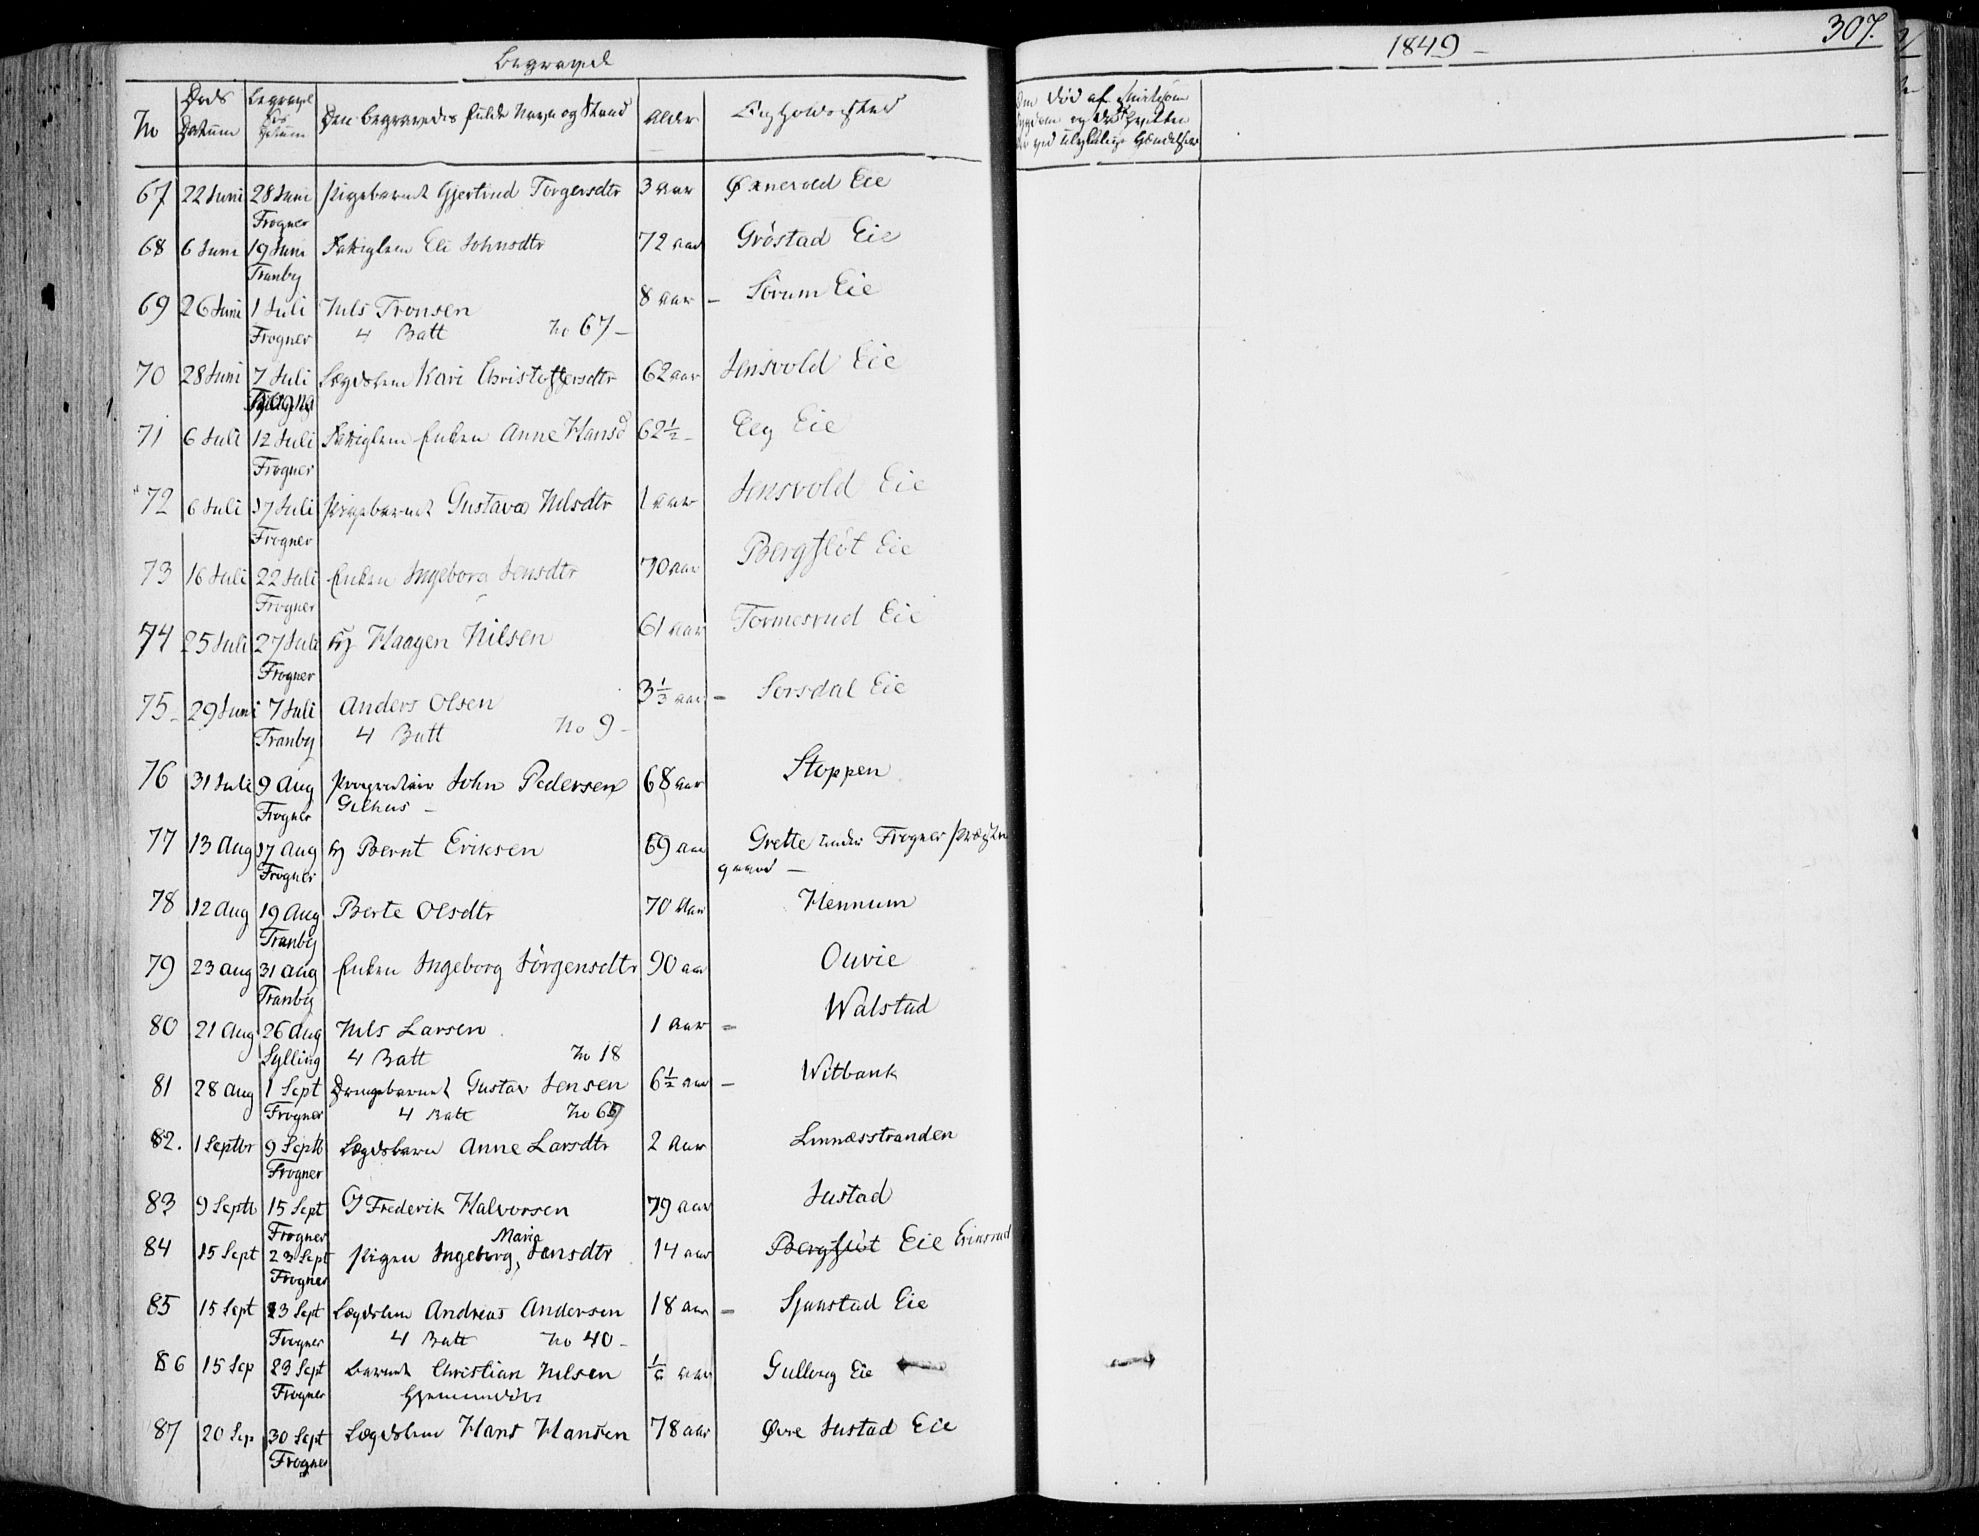 Begravede
1849 -
307.
No
Døds Datum
Begravelses Datum
Den Begravedes fulde Navn og Stand
Alder
Opholdssted
Om død af smitsom Sygdom
ved ulykkelige Hændelser
67 22 Juni 28 Juni Pigebarnet Gjertrud Torgersdtr 3 aar Øxnevold Eie
Frogner
68 6 Juni 19 Juni Fattiglem Eli Johnsdtr 72 aar Gröstad Eie
Tranby
69 26 Juni 1 Juli Nils Tronsen 8 aar - Sörum Eie
Frogner 4 Batt No 67 -
70 28 Juni 7 Juli Lægdslem Kari Christoffersdtr 62 aar Jensvold Eie
71 6 Juli 12 Juli Fattiglem Enken Anne Hansd 62½ - Eeg Eie
Frogner
72 6 Juli 17 Juli Pigebarnet Gustava Nilsdtr 1 aar Jensvold Eie
Frogner
73 16 Juli 22 Juli Enken Ingeborg Jensdtr 70 aar Bergflöt Eie
Frogner
74 25 Juli 27 Juli Haagen Nilsen 61 aar Tormesrud Eie
Frogner
75 - 29 Juni 7 Juli Anders Olsen 3⅓ aar - Sørsdal Eie
Tranby 4 Batt No 9 -
76 31 Juli 9 Aug Proprietair John Pedersen 68 aar Stoppen
Frogner Gilhus -
77 13 Aug 17 Aug Bernt Eriksen 69 aar Grette under Frogner Præste
Frogner gaard -
78 12 Aug 19 Aug Berte Olsdtr 70 Aar Hennum
Tranby
79 23 aug 31 aug Enken Ingeborg Jörgensdtr 90 aar Ouvie
Tranby
80 21 Aug 26 Aug Nils Larsen 1 Aar - Walstad
Sylling 4 Batt No 18
81 28 Aug 1 Sept Drengebarnet Gustav Jensen 6½ Aar - Witbank
Frogner 4 Batt
82. 1 Septbr 9 Septb Lægdsbarn Anne Larsdtr 2 Aar Linnæsstranden
Frogner
83 9 Septb 15 Sept Frederik Halvorsen 79 aar Justad
Frogner Maria
84 15 Sept 23 Sept Pigen Ingeborg, Jensdtr 14 aar Bergflöt Eie Eriksrud
Frogner
85 15 Sept 23 Sept Lægdslem Andreas Andersen 18 aar - Sjaastad Eie
Frogner 4 Batt No 40 -
86 15 Sep 23 Sept Barnet Christian Nilsen aar Gulloug Eie
Frogner Hjemmedöbt
87 20 Sep 30 Sept Lægdslem Hans Hansen 78 aar Øvre Justad Eie
Frogner